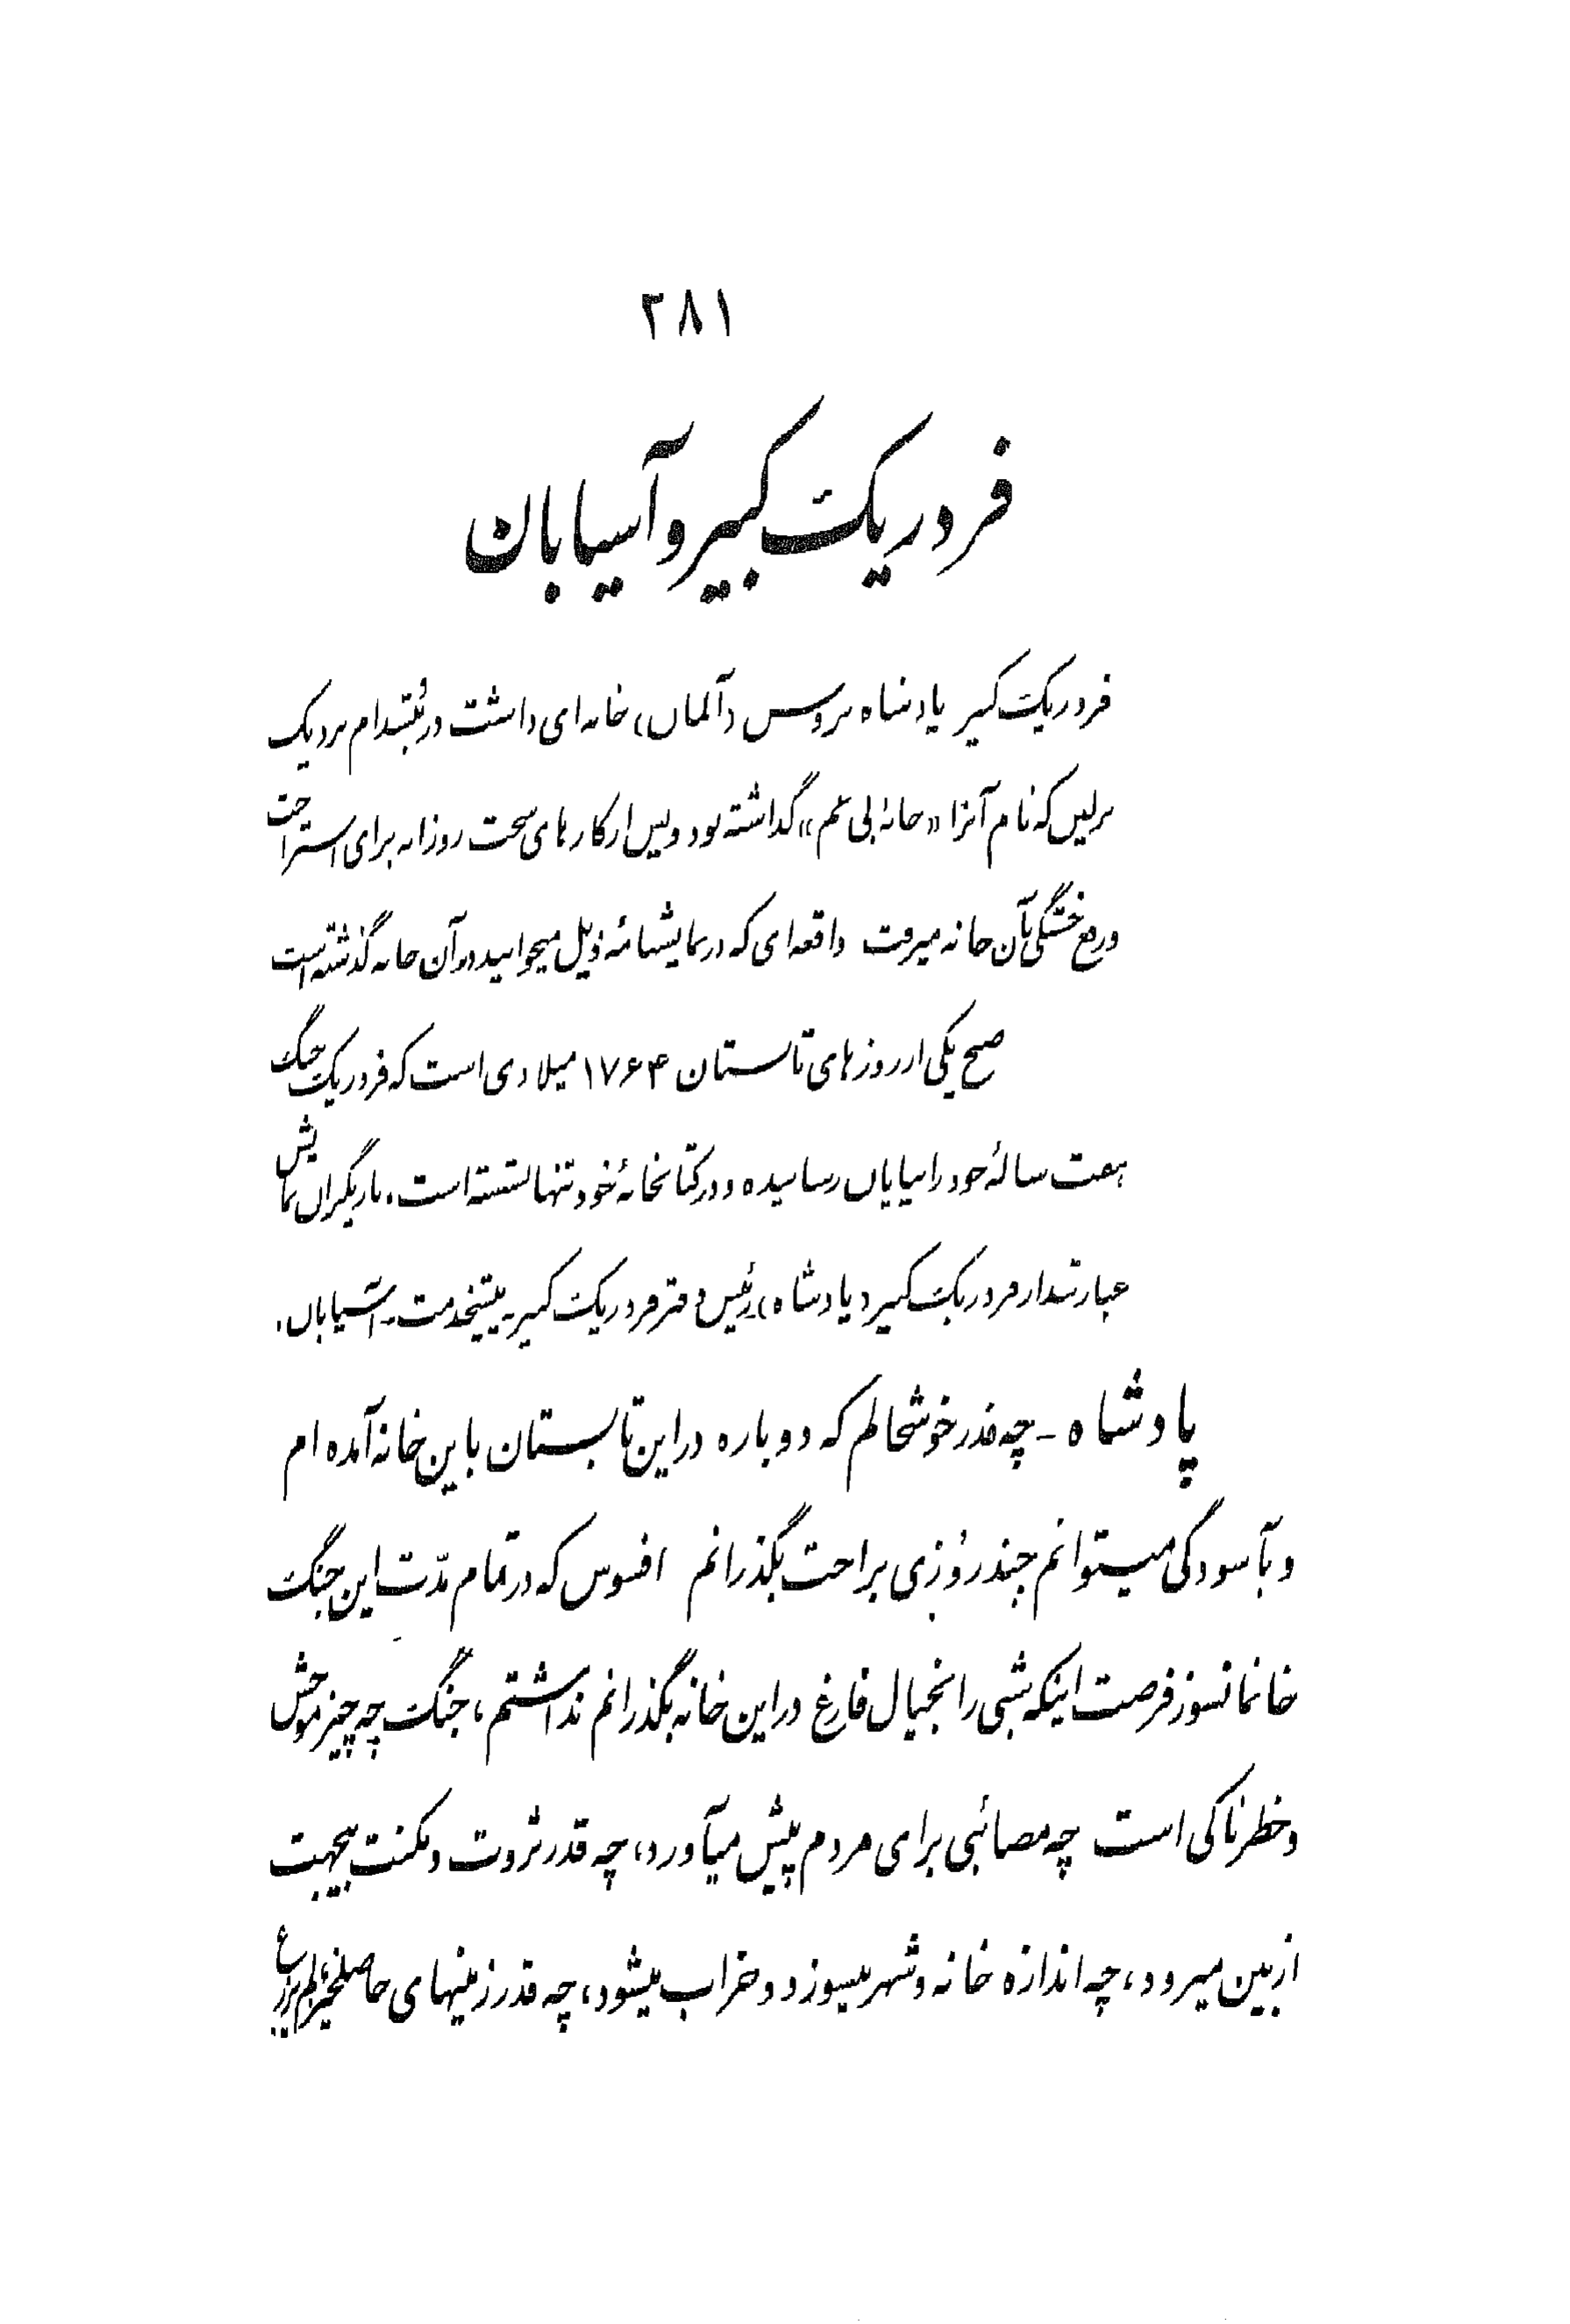 ۲۸۱
فردریک کبیر و آسیابان
فردریک کبیر پادشاه پروس (آلمان) خانه‌ای داشت در پُتسدام نزدیک
برلین که نام آنرا «خانهٔ بی غم» گذاشته بود و پس از کارهای سخت روزانه برای استراحت
و رفع خستگی بآن خانه میرفت واقعه‌ای که در نمایشنامهٔ ذیل میخوانید در آن خانه گذشته است
صبح یکی از روزهای تابستان ۱۷۶۴ میلادی است که فردریک جنگ
هفت سالهٔ خود را بپایان رسانیده و در کتابخانهٔ خود تنها نشسته است. بازیگران نمایش
عبارتند از فردریک کبیر (پادشاه) ـ رئیس دفتر فردریک کبیر ـ پیشخدمت ـ آسیابان.
پادشاه ـ چه قدر خوشحالم که دوباره در این تابستان باین خانه آمده‌ام
و بآسودگی میتوانم چند روزی براحت بگذرانم افسوس که در تمام مدّت این جنگ
خانمانسوز فرصت اینکه شبی را بخیال فارغ در این خانه بگذرانم نداشتم، جنگ چه چیز موحش
و خطرناکی است چه مصائبی برای مردم پیش میآورد، چه قدر ثروت و مکنت بیجهت
از بین میرود، چه اندازه خانه و شهر میسوزد و خراب میشود، چه قدر زمینهای حاصلخیز لم یزرع